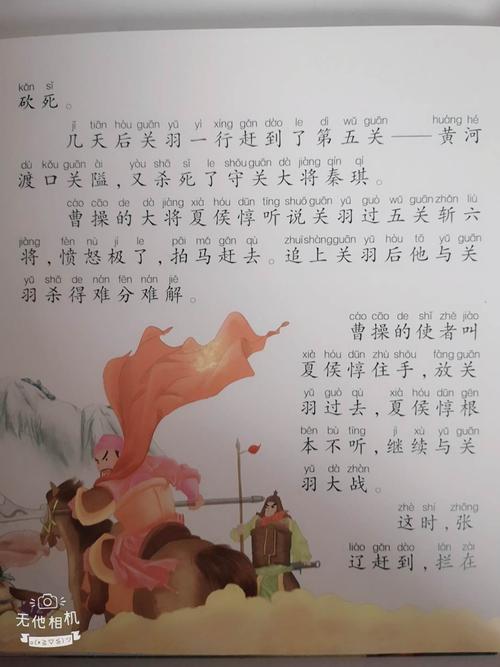 kǎn sǐ
砍死。
jǐ tiān hòu guān yǔ yì xíng gǎn dào le dì wǔ guān huáng hé
几天后关羽一行赶到了第五关——黄河
dù kǒu guān ài yòu shā sǐ le shǒu guān dà jiàng qín qí
渡口关隘，又杀死了守关大将秦琪。
cáo cāo de dà jiàng xià hóu dūn tīng shuō guān yǔ guò wǔ guān zhǎn liù
曹操的大将夏侯惇听说关羽过五关斩六
jiàng fèn nù jí le pāi mǎ gǎn qù zhuī shàng guān yǔ hòu tā yǔ guān
将，愤怒极了，拍马赶去。追上关羽后他与关
yǔ shā de nán fēn nán jiě
羽杀得难分难解。
cáo cāo de shǐ zhě jiào
曹操的使者叫
xià hóu dūn zhù shǒu fàng guān
夏侯惇住手，放关
yǔ guò qù xià hóu dūn gēn
羽过去，夏侯惇根
běn bù tīng jì xù yǔ guān
本不听，继续与关
yǔ dà zhàn
羽大战。
zhè shí zhāng
这时，张
liáo gǎn dào lán zài
辽赶到，拦在
无他相机